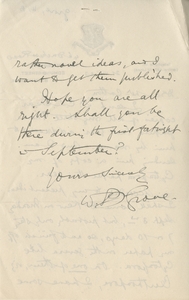 rather novel ideas, and I
want to get them published.
Hope you are all
right. Shall you be
there during the first fortnight
September?
Yours Sincerely
Grove.